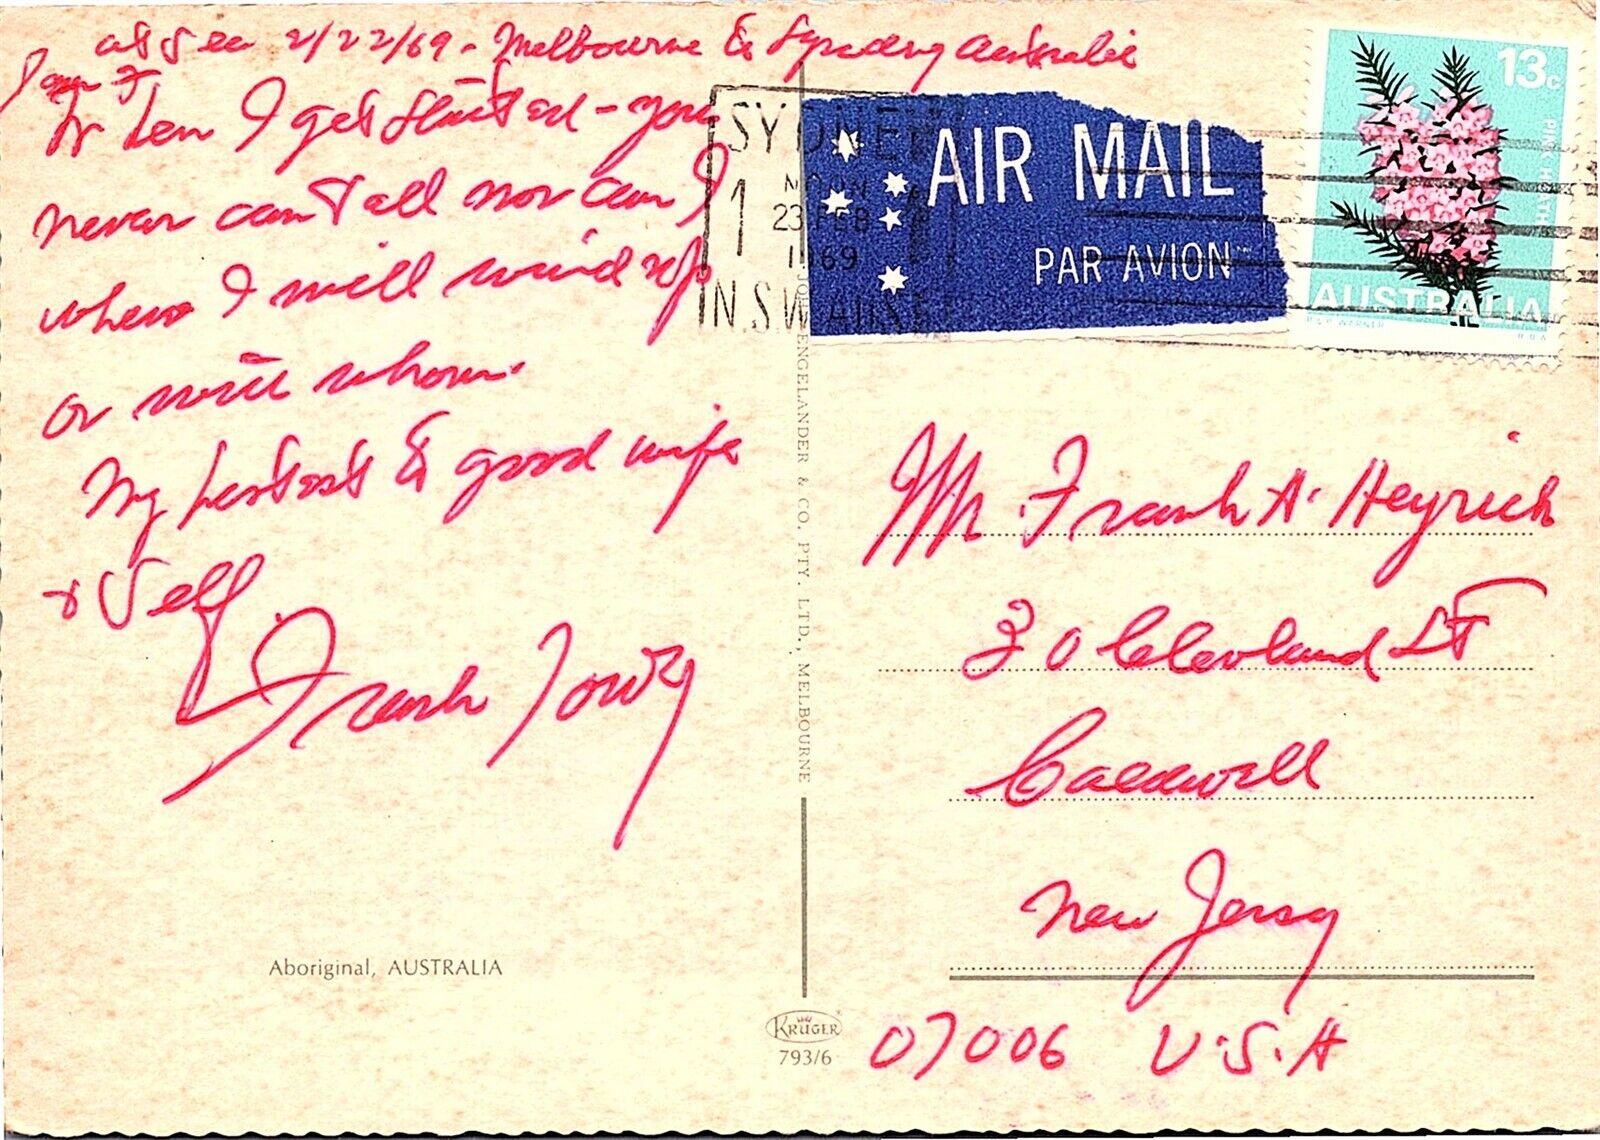 at Sea 2/22/69 - Melbourne & Sydney Australia
Dear F
When I get started - you
never can tell nor can I
where I will wind up
or with whom.
My bestest to good wife
& Self
Frank
AIR MAIL
PAR AVION
SYDNEY
1 NOON
23 FEB
1969
N.S.W. AUST
13c
PINK HEATH
AUSTRALIA
Mr. Frank A. Heyrich
30 Cleveland St
Caldwell
New Jersey
07006 U.S.A
ENGELANDER & CO. PTY. LTD., MELBOURNE
Aboriginal, AUSTRALIA
KRÜGER
793/6